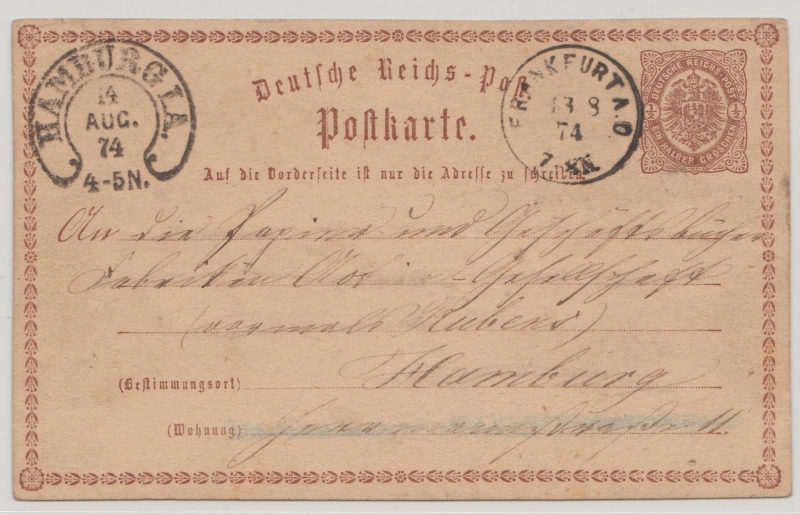 HAMBURG I.A.
14
AUG.
74
4-5N.
Deutsche Reichs-Post
Postkarte.
FRANKFURT A.O
13 8
74
7-8N
DEUTSCHE REICHS-POST
½ ½
EIN HALBER GROSCHEN
Auf die Vorderseite ist nur die Adresse zu schreiben.
An die Papier und Geschäftsbücher
Fabriken Gesellschaft
(vormals Rubens)
(Bestimmungsort) Hamburg
(Wohnung) 11.